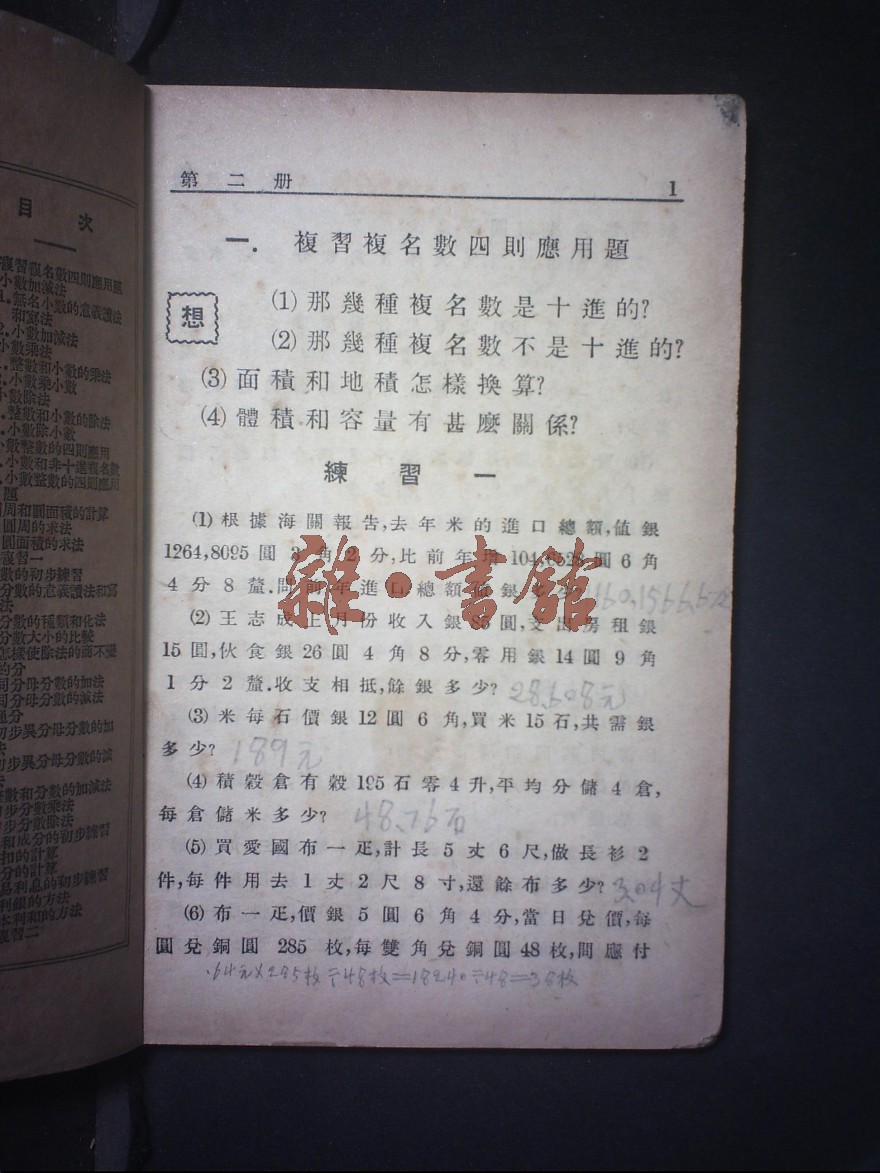 目次
複習複名數四則應用題
小數加減法
1.無名小數的意義讀法
和寫法
2.小數加減法
小數乘法
整數和小數的乘法
小數乘小數
小數除法
整數和小數的除法
小數除小數
小數整數的四則應用
小數和非十進複名數
小數整數的四則應用
題
圓周和圓面積的計算
圓周的求法
圓面積的求法
複習一
分數的初步練習
分數的意義讀法和寫
法
分數的種類和化法
分數大小的比較
怎樣使除法的商不變
約分
同分母分數的加法
同分母分數的減法
通分
初步異分母分數的加
法
初步異分母分數的減
法
整數和分數的加減法
初步分數乘法
初步分數除法
折扣的計算
利銀的方法
本利和的方法
複習二
第二册 1
一. 複習複名數四則應用題
想
(1) 那幾種複名數是十進的?
(2) 那幾種複名數不是十進的?
(3) 面積和地積怎樣換算?
(4) 體積和容量有甚麽關係?
練習一
(1) 根據海關報告,去年米的進口總額,值銀
1264,8095圓3角2分,比前年增104,6528圓6角
4分8釐.問前年進口總額值銀多少?
(2) 王志成上月份收入銀85圓,支出房租銀
15圓,伙食銀26圓4角8分,零用銀14圓9角
1分2釐.收支相抵,餘銀多少? 28.608元
(3) 米每石價銀12圓6角,買米15石,共需銀
多少? 189元
(4) 積穀倉有穀195石零4升,平均分儲4倉,
每倉儲米多少? 48.76石
(5) 買愛國布一疋,計長5丈6尺,做長衫2
件,每件用去1丈2尺8寸,還餘布多少? 3.04丈
(6) 布一疋,價銀5圓6角4分,當日兌價,每
圓兌銅圓285枚,每雙角兌銅圓48枚,問應付
.64元×285枚÷48枚=18240÷48=38枚
雜·書館